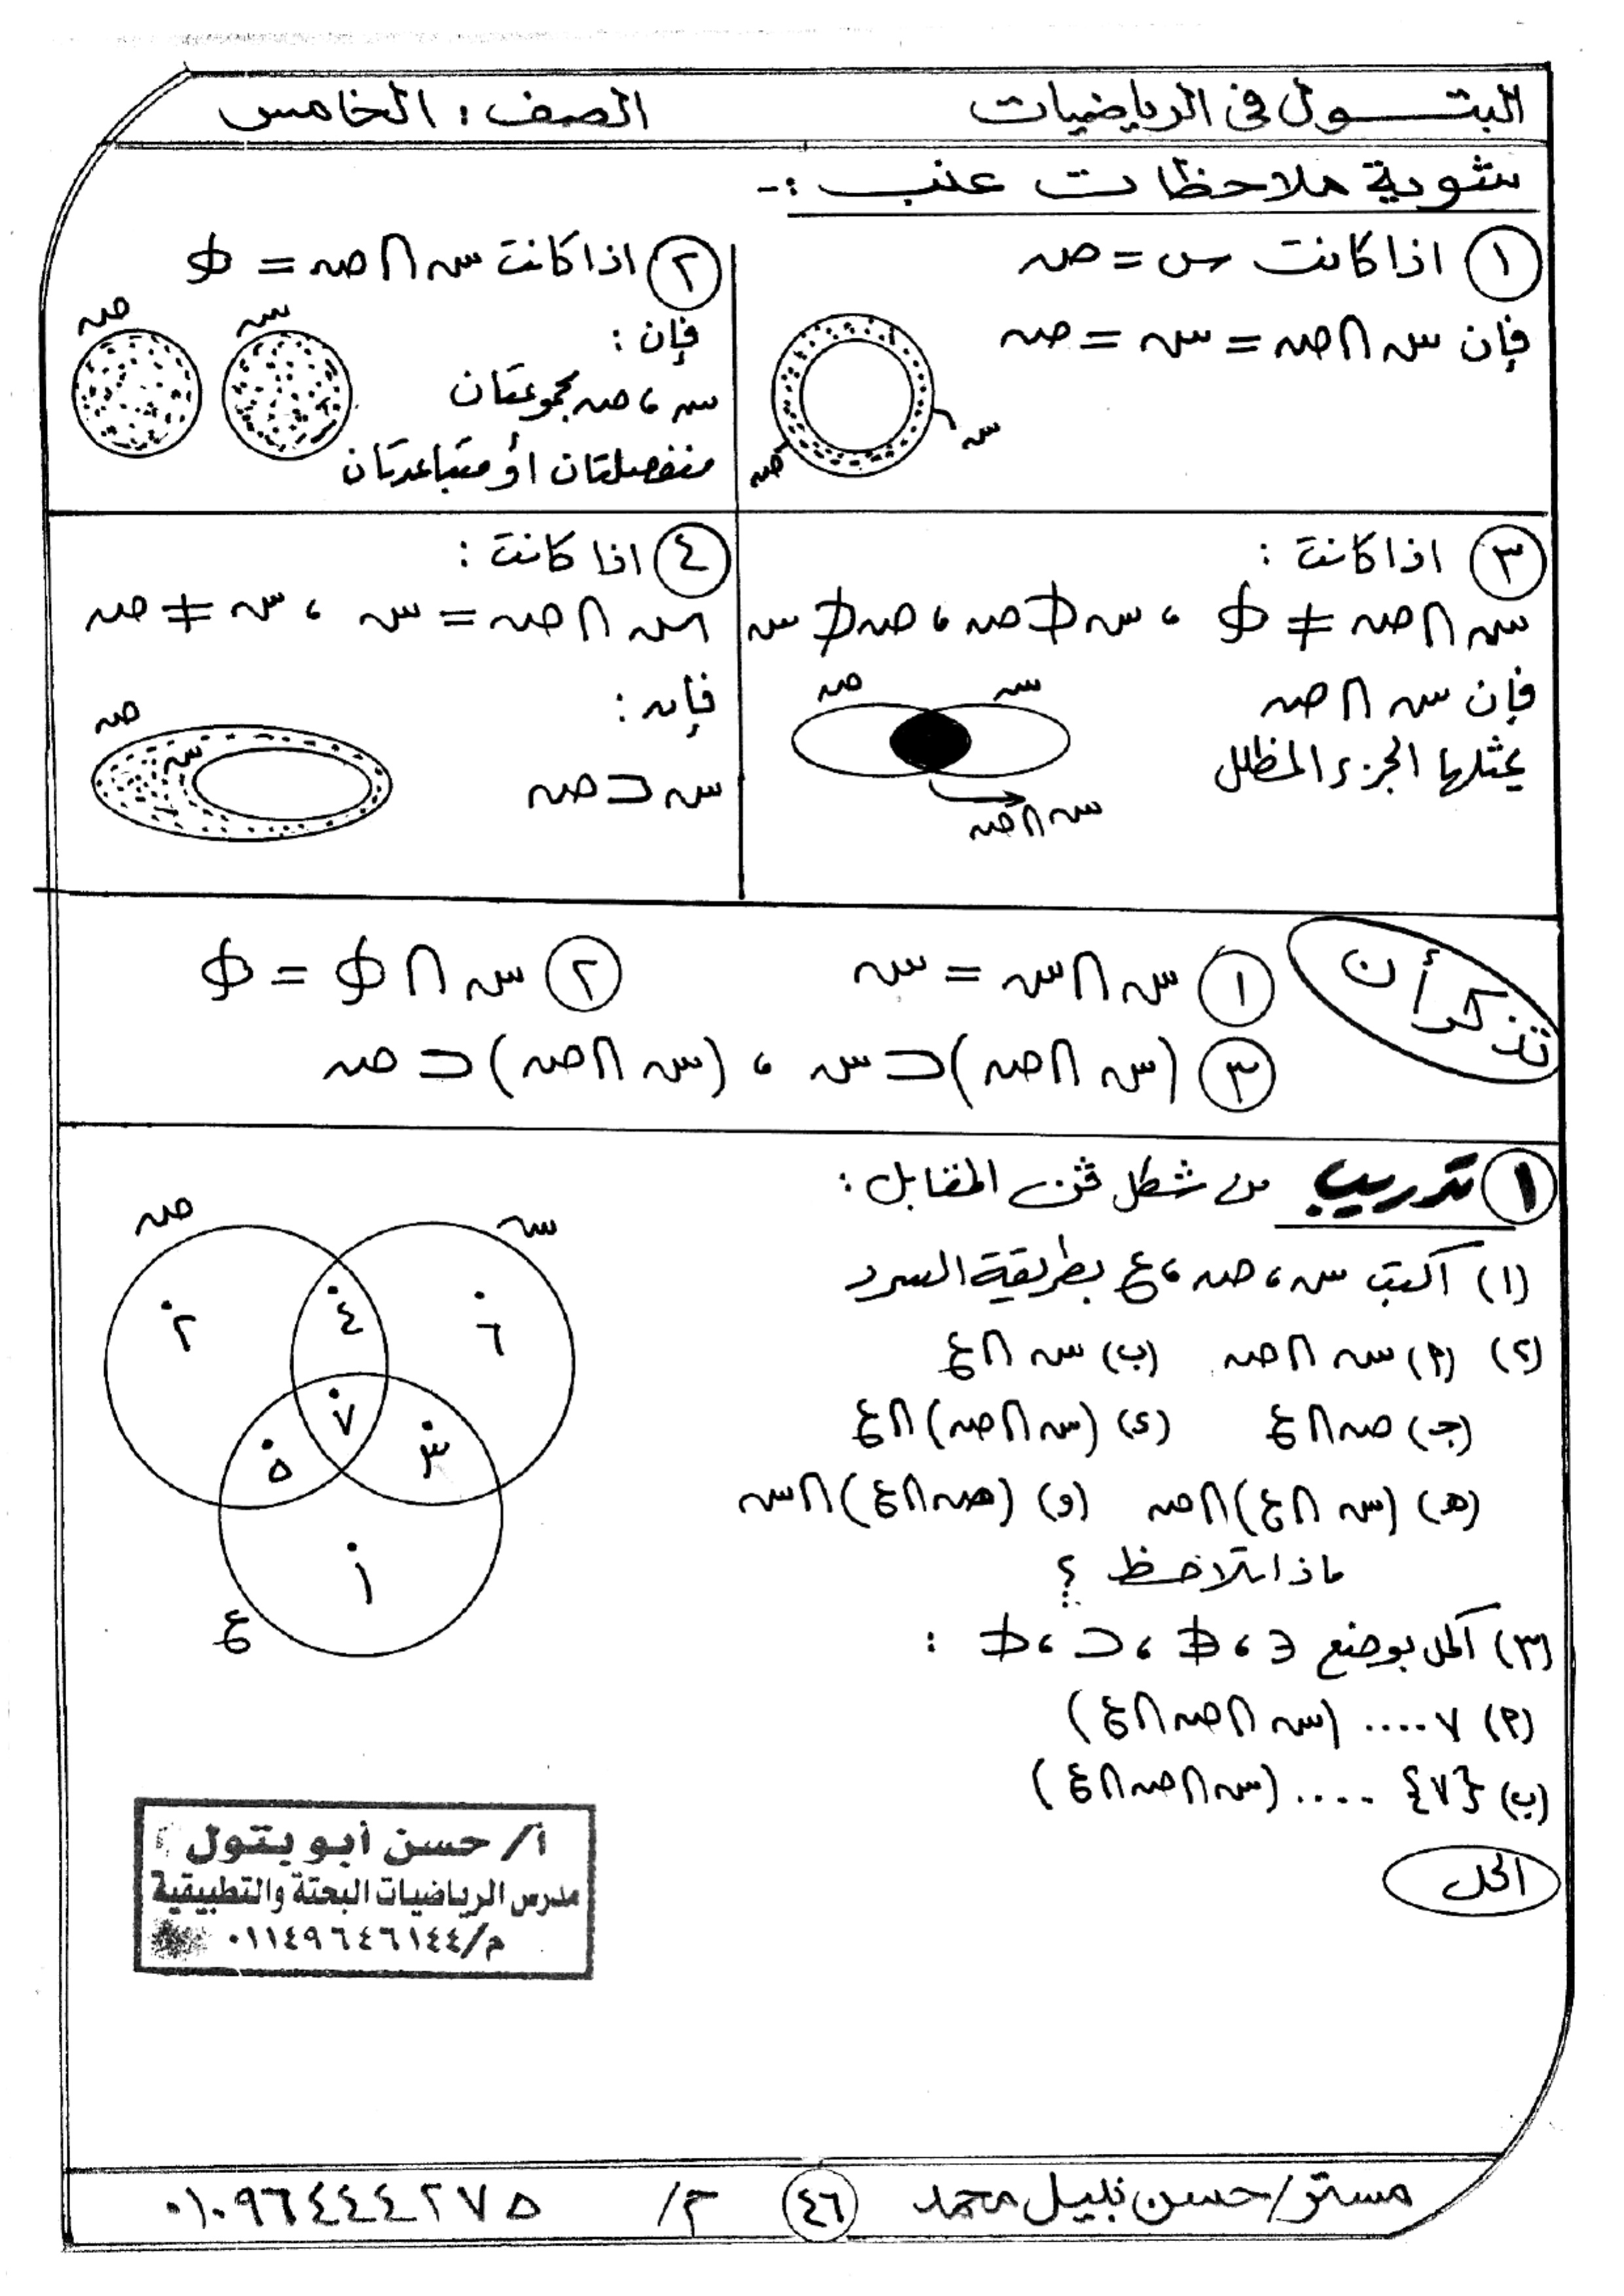 البتـــول فى الرياضيات
الصف : الخامس
شوية ملاحظات عنب :-
١ اذا كانت س = ص
فإن س ∩ ص = س = ص
ص س
٢ اذا كانت س ∩ ص = ∅
فإن :
س ، ص مجموعتان
منفصلتان أو متباعدتان
ص س
٣ اذا كانت :
س ∩ ص ≠ ∅ ، س ⊄ ص ، ص ⊄ س
فإن س ∩ ص
يمثلها الجزء المظلل
ص س
س ∩ ص
٤ اذا كانت :
س ∩ ص = س ، س ≠ ص
فإن :
س ⊂ ص
ص س
تذكر أن
١ س ∩ س = س ٢ س ∩ ∅ = ∅
٣ (س ∩ ص) ⊂ س ، (س ∩ ص) ⊂ ص
١ تدريب من شكل ڤن المقابل :
(١) اكتب س ، ص ، ع بطريقة السرد
(٢) (٩) س ∩ ص (ب) س ∩ ع
(جـ) ص ∩ ع (د) (س ∩ ص) ∩ ع
(هـ) (س ∩ ع) ∩ ص (و) (ص ∩ ع) ∩ س
ماذا تلاحظ ؟
(٣) اكمل بوضع ∈ ، ∉ ، ⊂ ، ⊄ :
(٩) ٧ .... (س ∩ ص ∩ ع)
(ب) {٧} .... (س ∩ ص ∩ ع)
الحل
ص س
٢ ٤ ٦
٧
٥ ٣
١
ع
أ/ حسن أبو بتول
مدرس الرياضيات البحتة والتطبيقية
م/٠١١٤٩٦٤٦١٤٤
مستر/ حسن نبيل محمد ٤٦ م/ ٠١٠٩٦٤٤٤٢٧٥